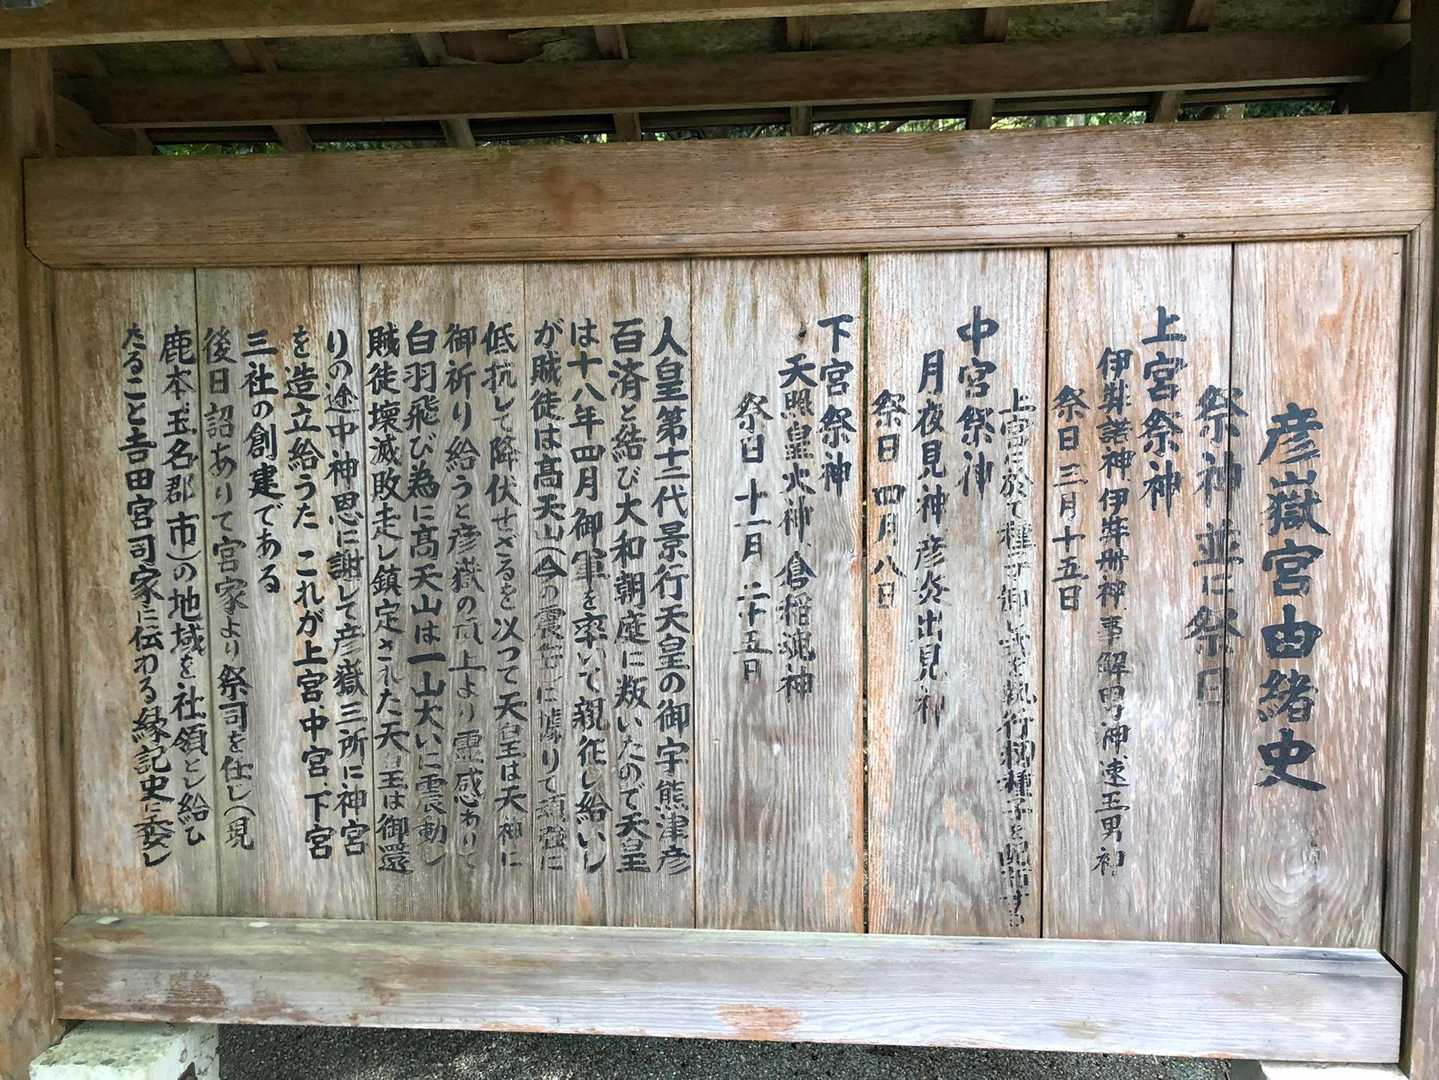 彦嶽宮由緒史
祭神並に祭日
上宮祭神
伊弉諾神 伊弉册神 事解男神 速玉男神
祭日 三月十五日
上宮に於て種子卸し式を執行籾種子を配布する
中宮祭神
月夜見神 彦炎出見神
祭日 四月八日
下宮祭神
天照皇大神 倉稲魂神
祭日 十一月二十五日
人皇第十二代景行天皇の御宇熊津彦
百済と結び大和朝庭に叛いたので天皇
は十八年四月御軍を率いて親征し給いし
が賊徒は高天山(今の震岳)に墟りて頑強に
低抗して降伏せざるを以つて天皇は天神に
御祈り給うと彦嶽の頂上より霊感ありて
白羽飛び為に高天山は一山大いに震動し
賊徒壊滅敗走し鎮定された天皇は御還
りの途中神恩に謝して彦嶽三所に神宮
を造立給うた これが上宮中宮下宮
三社の創建である
後日 詔ありて宮家より祭司を任し(現
鹿本玉名郡市)の地域を社領とし給ひ
たること吉田宮司家に伝わる縁記史に委し